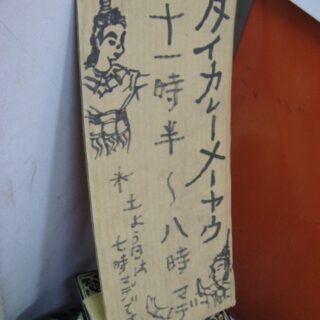 タイカレーメーヤウ
十一時半～八時マデ
※土よう日は
七時マデデス